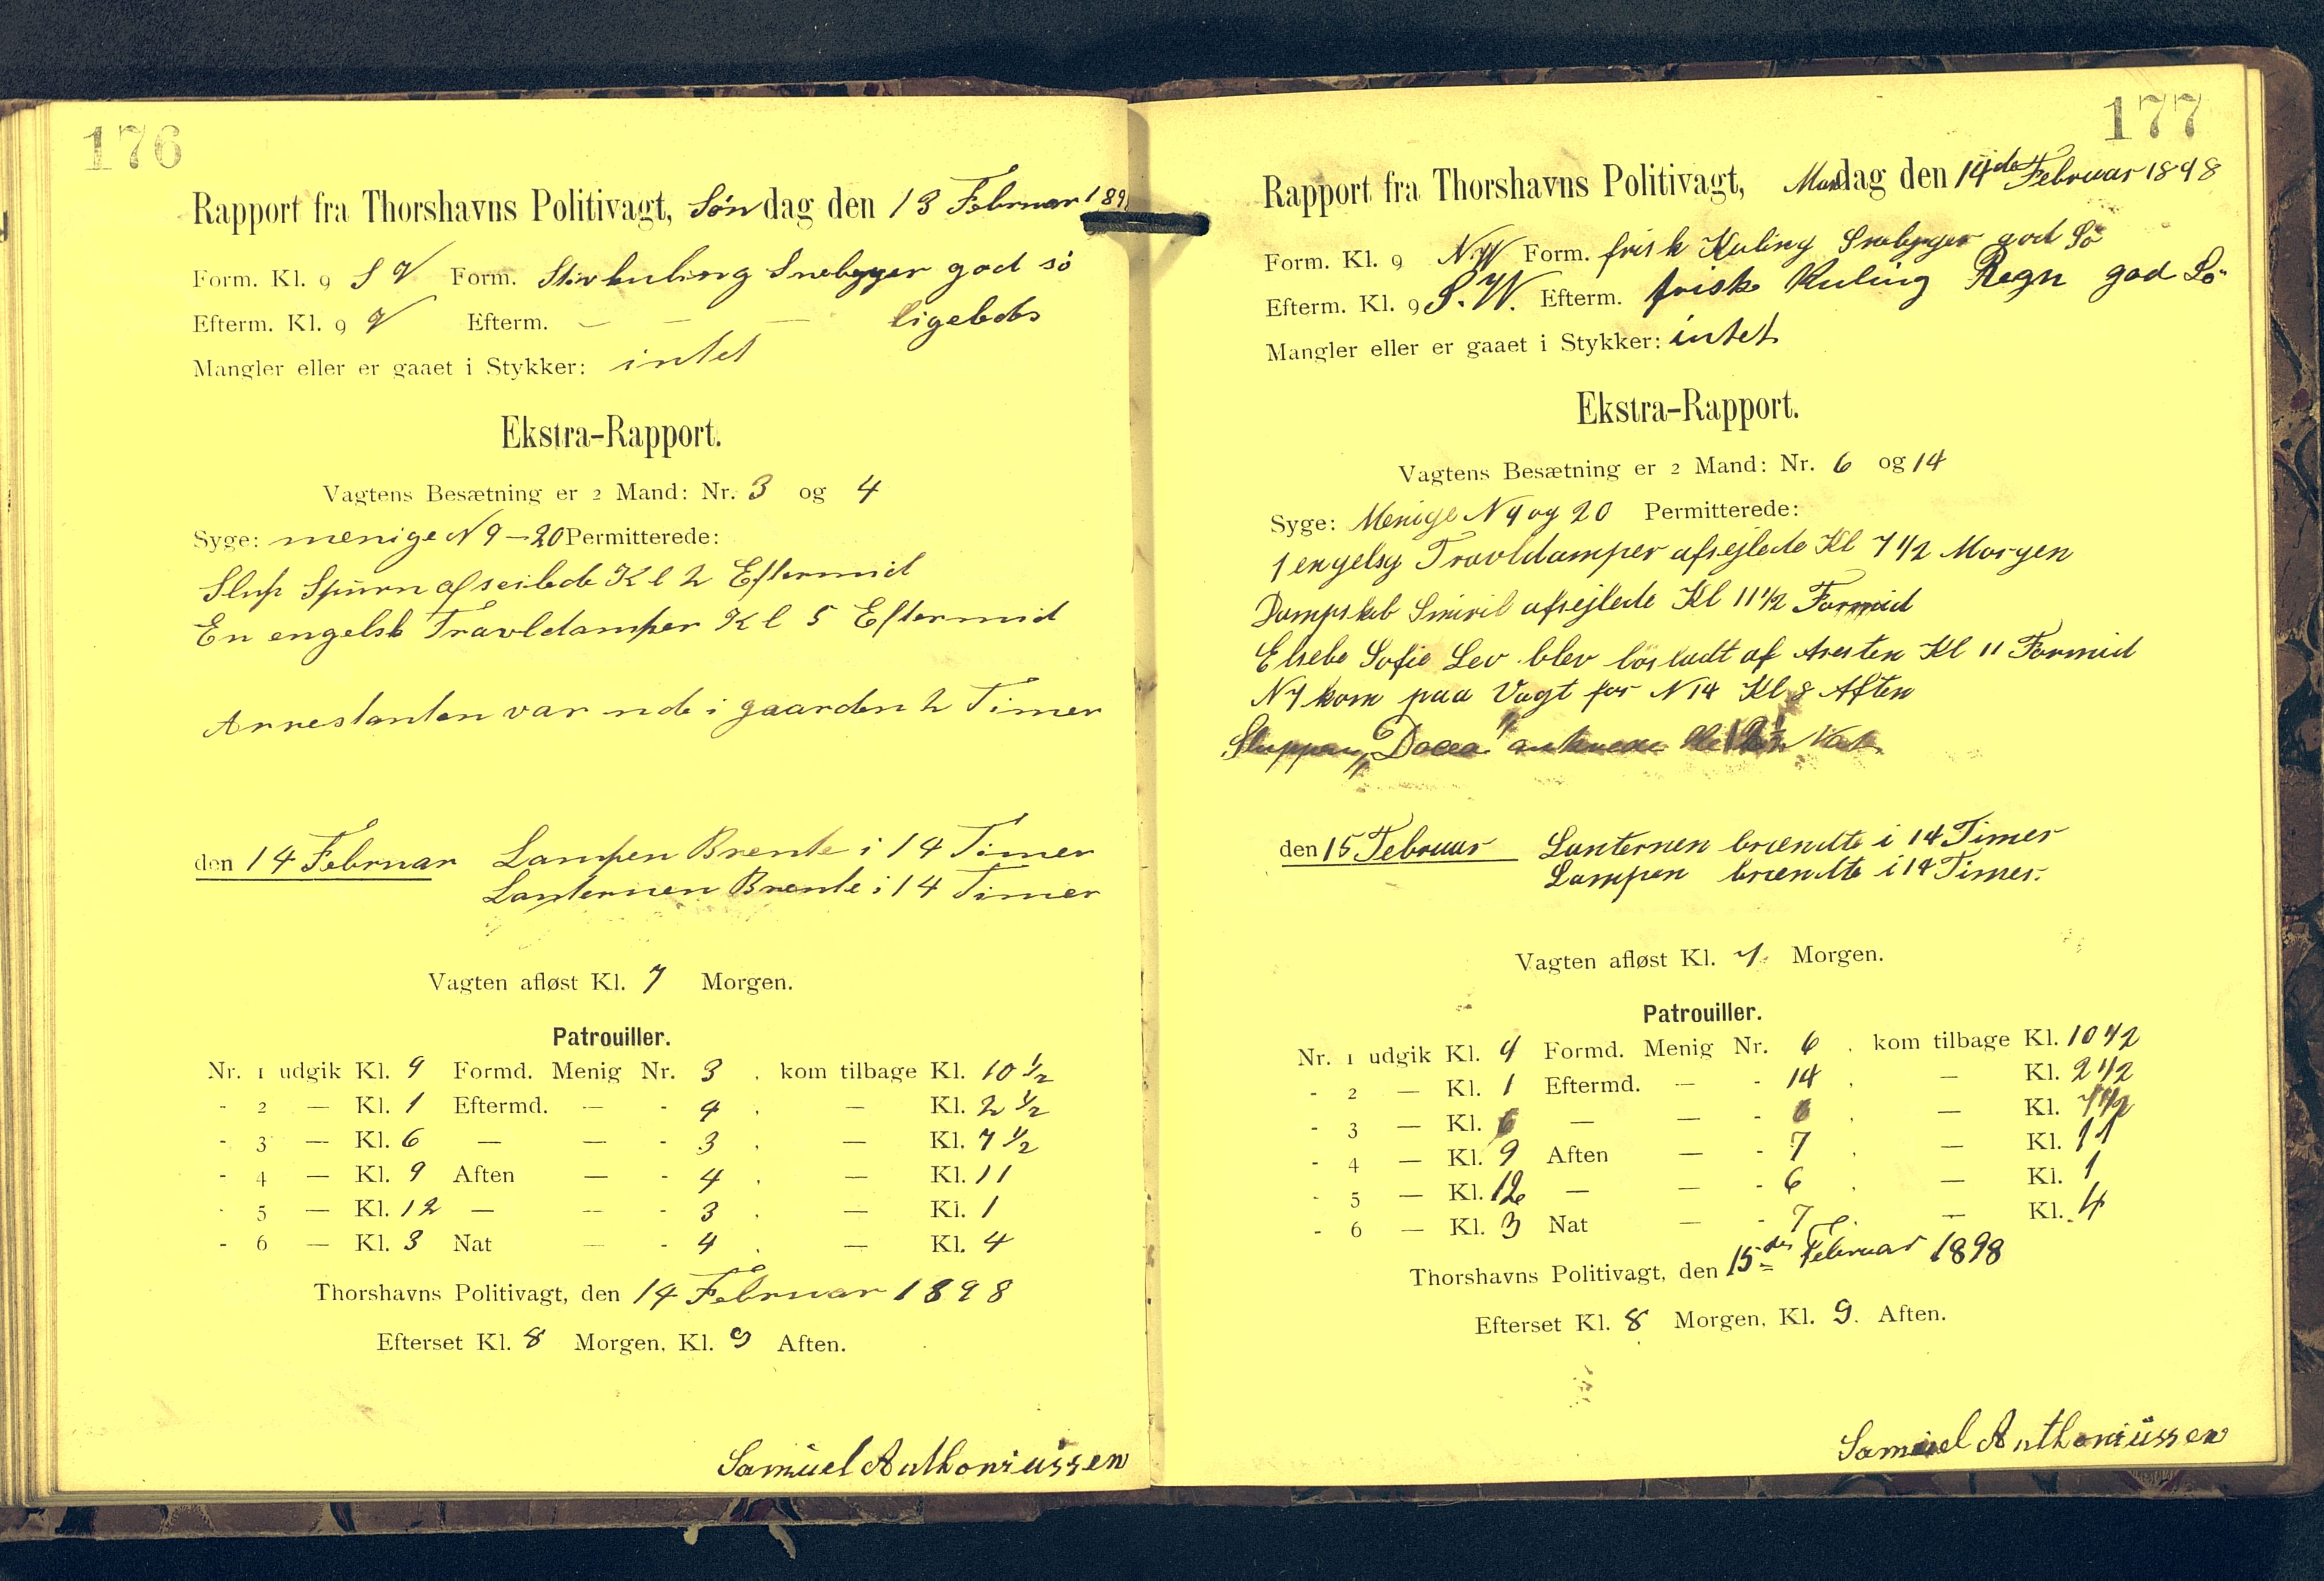 176
Rapport fra Thorshavns Politivagt, Søndag den 13 Februar 189
Form. Kl. 9 S V Form. Stivkuling Snebyger god sö
Efterm. Kl. 9 V Efterm. — — — ligeleds
Mangler eller er gaaet i Stykker: intet
Ekstra-Rapport.
Vagtens Besætning er 2 Mand: Nr. 3 og 4
Syge: menige N 9 – 20 Permitterede:
Slup Spurn afseilede Kl 2 Eftermid
En engelsk Travldamper Kl 5 Eftermid
Arrestanten var ude i gaarden 2 Timer
den 14 Februar Lampen Brente i 14 Timer
Lanternen Brente i 14 Timer
Vagten afløst Kl. 7 Morgen.
Patrouiller.
Nr. 1 udgik Kl. 9 Formd. Menig Nr. 3 . kom tilbage Kl. 10 1/2
- 2 — Kl. 1 Eftermd. — - 4 . — Kl. 2 1/2
- 3 — Kl. 6 — — - 3 . — Kl. 7 1/2
- 4 — Kl. 9 Aften — - 4 . — Kl. 11
- 5 — Kl. 12 — — - 3 . — Kl. 1
- 6 — Kl. 3 Nat — - 4 . — Kl. 4
Thorshavns Politivagt, den 14 Februar 1898
Efterset Kl. 8 Morgen, Kl. 9 Aften.
Samuel Anthoniussen
177
Rapport fra Thorshavns Politivagt, Mandag den 14de Februar 1898
Form. Kl. 9 N.W Form. frisk Kuling Snebyger god Sö
Efterm. Kl. 9 S.W. Efterm. friske Kuling Regn god Sö
Mangler eller er gaaet i Stykker: intet
Ekstra-Rapport.
Vagtens Besætning er 2 Mand: Nr. 6 og 14
Syge: Menige N 9 og 20 Permitterede:
1 engelsg Travldamper afsejlede Kl 7 1/2 Morgen
Dampskib Smiril afsejlede Kl 11 1/2 Formid
Elsebe Sofie Lev blev lösladt af Aresten Kl 11 Formid
N 7 kom paa Vagt for N 14 Kl 8 Aften
Sluppen ankom Nat
den 15 Februar Lanternen brændte i 14 Timer
Lampen brændte i 14 Timer.
Vagten afløst Kl. 7. Morgen.
Patrouiller.
Nr. 1 udgik Kl. 9 Formd. Menig Nr. 6 . kom tilbage Kl. 10 1/2
- 2 — Kl. 1 Eftermd. — - 14 . — Kl. 2 1/2
- 3 — Kl. 6 — — - 6 . — Kl. 7 1/2
- 4 — Kl. 9 Aften — - 7 . — Kl. 11
- 5 — Kl. 12 — — - 6 . — Kl. 1
- 6 — Kl. 3 Nat — - 7 . — Kl. 4
Thorshavns Politivagt, den 15de Februar 1898
Efterset Kl. 8 Morgen, Kl. 9. Aften.
Samuel Anthoniussen